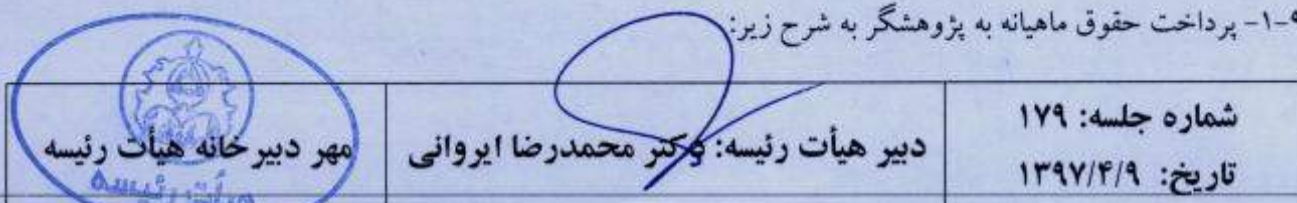 ۹-۱- پرداخت حقوق ماهیانه به پژوهشگر به شرح زیر:
شماره جلسه: ۱۷۹
تاریخ: ۱۳۹۷/۴/۹
دبیر هیأت رئیسه: دکتر محمدرضا ایروانی
مهر دبیرخانه هیأت رئیسه
هیأت رئیسه